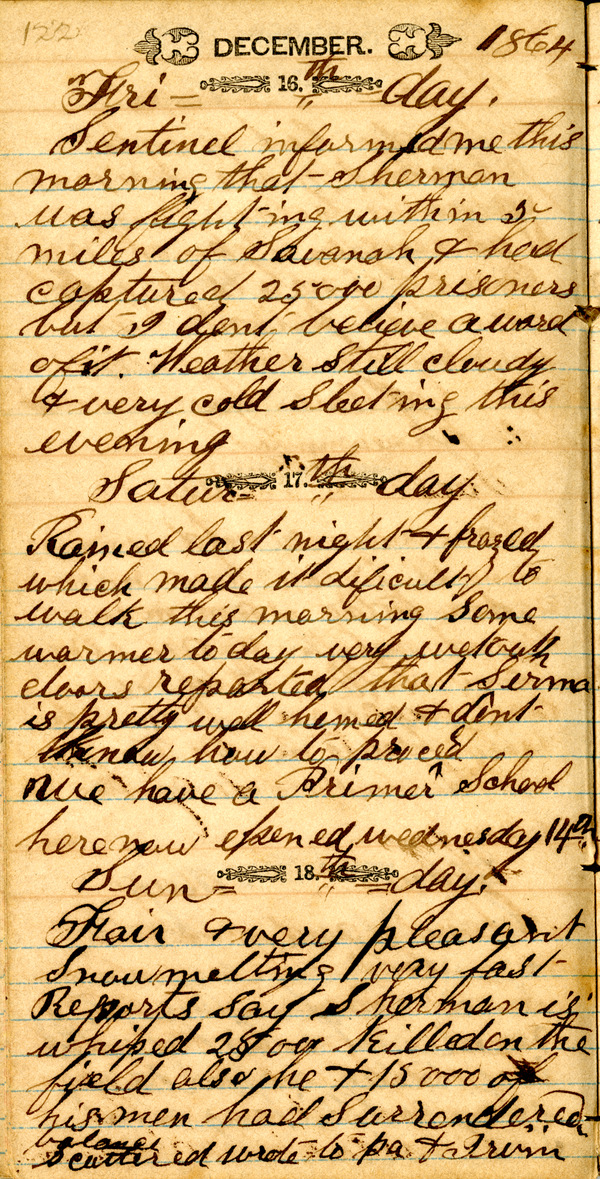 122
DECEMBER. 1864
Fri = 16.th = day.
Sentinel informed me this
morning that Sherman
was fight-ing within 5
miles of Savanah & had
captured 25000 prisoners
but I dont believe a word
of it. Weather still cloudy
& very cold Sleeting this
evening
Satur- 17.th day
Rained last night & frozed
which made it dificult to
walk this morning Some
warmer to day very wet out
doors reported that Serma
is pretty well hemed & dont
know how to proced
We have a Primer School
here now opened wednesday 14th
Sun = 18.th = day.
Fair & very pleasant
Snow melting very fast
Reports say Sherman is
whiped 25000 Killed on the
field also he & 15000 of
his men had Surrendered
balance
Scattered wrote to pa &